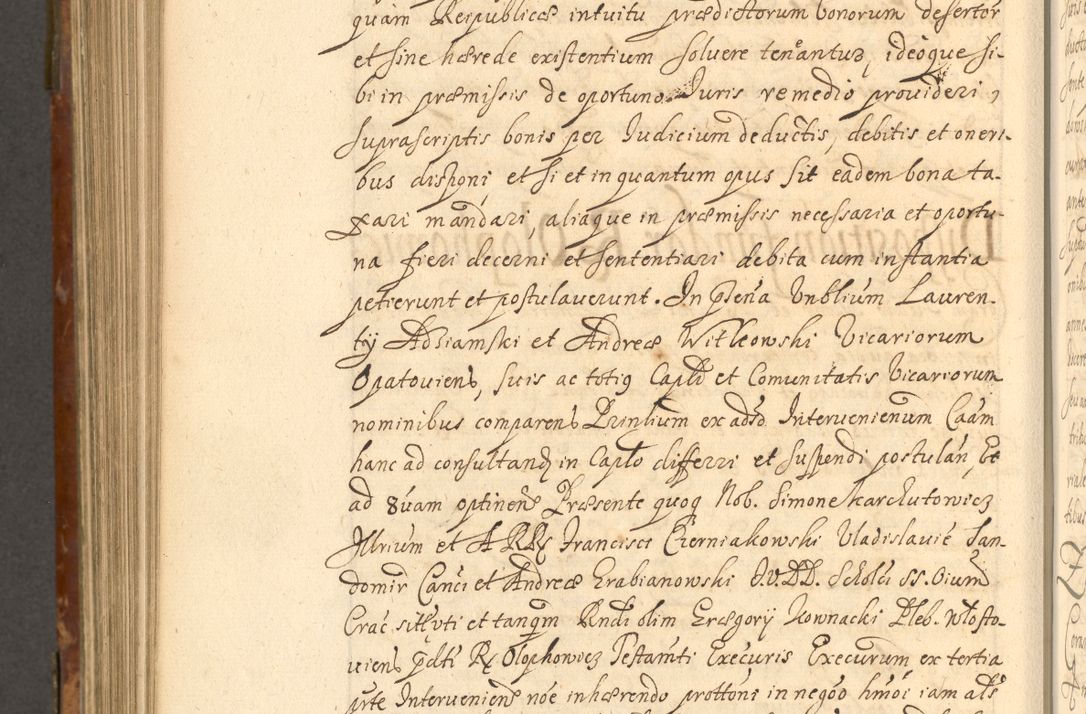 quam Reipublicæ intuitu prædictorum bonorum desertor
et sine hærede existentium soluere tenentur, ideoque si-
bi in præmissis de oportuno Iuris remedio prouideri,
suprascriptis bonis per Iudicium deductis, debitis et oneri-
bus disponi et si et in quantum opus sit eadem bona ta-
xari mandari, aliaque in præmissis necessaria et oportu-
na fieri decerni et sententiari debita cum instantia
petierunt et postulauerunt. In pñtia Vnblium Lauren-
tij Adziamski et Andreæ Witkowski Vicariorum
Opatouiens, suis ac totiq Caplí et Comunitatis Vicariorum
nominibus comparens Prinlium ex adso Interuenienum Caãm
hanc ad consultand in Caplo differri et suspendi postulan, Et
ad 8uam optinens Præsente quoq Nob. Simone Karchutowicz
Illrium et ARR Francisci Czerniakowski Vladislauie San-
domir Canci et Andreæ Grabianowski I.V.DD. Scholci SS. Oium
Crac sitę vti et tanqm Rndi olim Grægorij Kownacki Pleb. Włosto-
uiens pdti R Olophowicz Testamti Execuris Execurum ex tertia
prte Interueniens noe inhærendo prottoni in negoo hmoi iam als